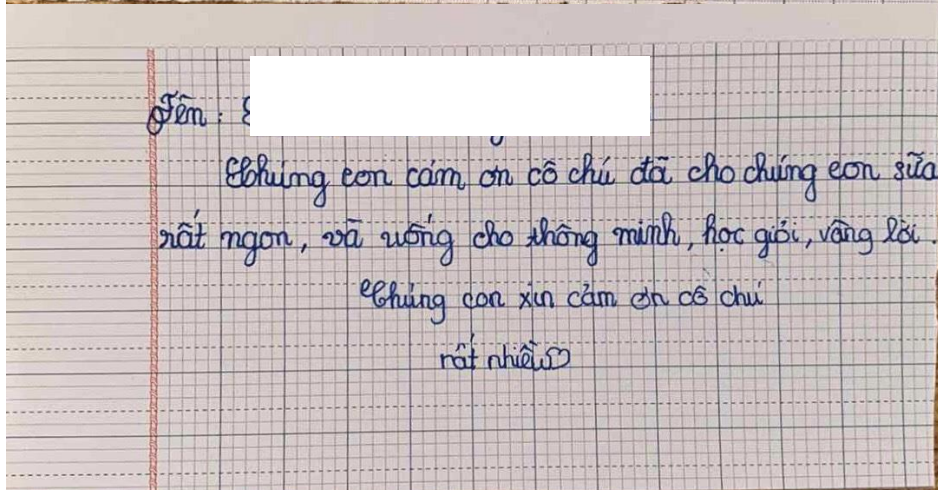 Tên :
Chúng con cám ơn cô chú đã cho chúng con sữa
rất ngon, và uống cho thông minh, học giỏi, vâng lời.
Chúng con xin cảm ơn cô chú
rất nhiều♡